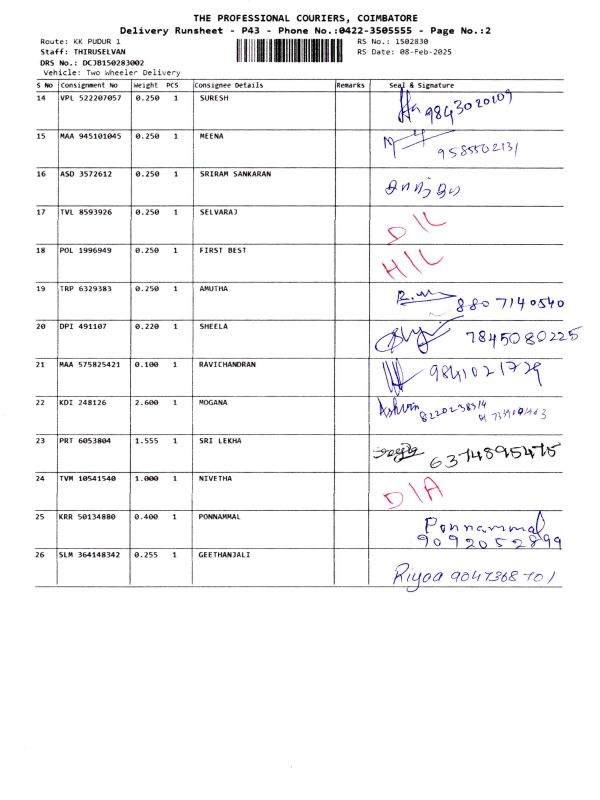 THE PROFESSIONAL COURIERS, COIMBATORE
Delivery Runsheet - P43 - Phone No.:0422-3505555 - Page No.:2
Route: KK PUDUR 1 RS No.: 1502830
Staff: THIRUSELVAN RS Date: 08-Feb-2025
DRS No.: DCJB150283002
Vehicle: Two Wheeler Delivery
S No Consignment No Weight PCS Consignee Details Remarks Seal & Signature
14 VPL 522207057 0.250 1 SURESH 9843020109
15 MAA 945101045 0.250 1 MEENA 9585502131
16 ASD 3572612 0.250 1 SRIRAM SANKARAN
17 TVL 8593926 0.250 1 SELVARAJ D/L
18 POL 1996949 0.250 1 FIRST BEST H/L
19 TRP 6329383 0.250 1 AMUTHA 8807140540
20 DPI 491107 0.220 1 SHEELA 7845080225
21 MAA 575825421 0.100 1 RAVICHANDRAN 9841021729
22 KDI 248126 2.600 1 MOGANA Ashwin
23 PRT 6053804 1.555 1 SRI LEKHA 6374895475
24 TVM 10541540 1.000 1 NIVETHA D/A
25 KRR 50134880 0.400 1 PONNAMMAL Ponnammal
9092052899
26 SLM 364148342 0.255 1 GEETHANJALI Riyaa 9047368701